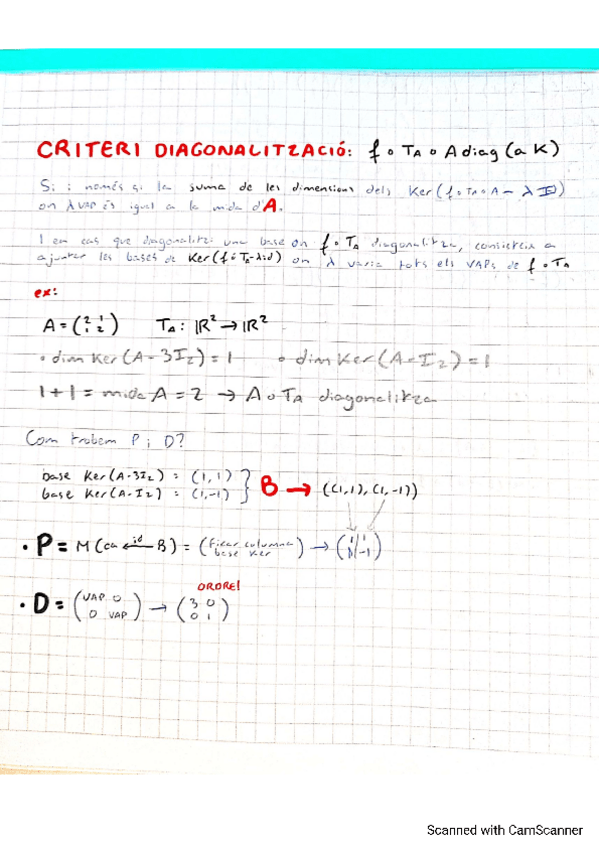 CRITERI DIAGONALITZACIÓ: f o TA o A diag (a K)
Si i només si la suma de les dimensions dels Ker(f o TA o A - λ Id)
on λ VAP és igual a la mida d'A.
I en cas que diagonalitzi una base on f o TA diagonalitza, consisteix a
ajuntar les bases de Ker(f o TA - λid) on λ varia tots els VAPs de f o TA
ex:
A = (2 1 1 2) TA : ℝ² → ℝ²
• dim Ker(A - 3I₂) = 1 • dim Ker(A - I₂) = 1
1 + 1 = mida A = 2 → A o TA diagonalitza
Com trobem P i D?
base Ker(A - 3I₂) = (1, 1)
base Ker(A - I₂) = (1, -1) } B → ((1,1), (1,-1))
• P = M(ca ←id B) = (ficar columna base Ker) → (1 1 1 -1)
ORDRE!
• D = (VAP 0 0 VAP) → (3 0 0 1)
Scanned with CamScanner